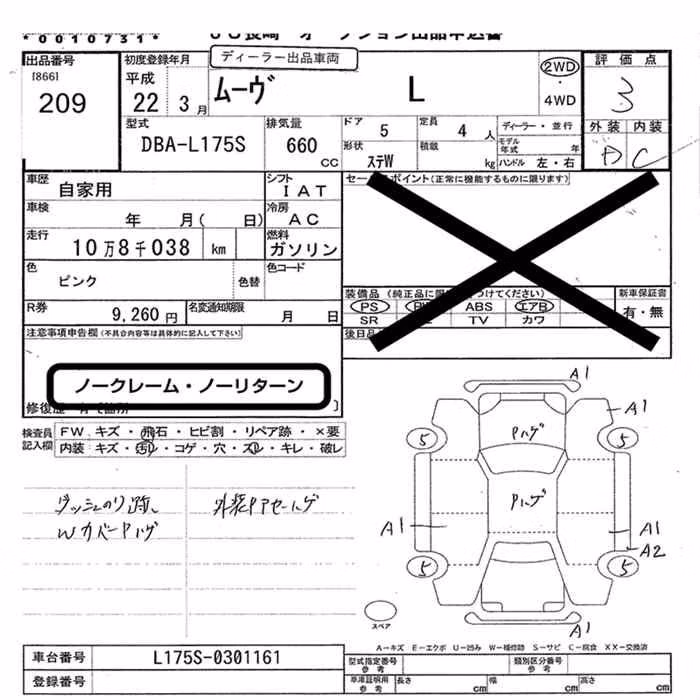 *0010731*
JU長崎 オークション出品申込書
出品番号
[866]
209
初度登録年月
平成
22 3月
ディーラー出品車両
ムーヴ
L
2WD
・
4WD
評価点
3
外装 内装
D C
型式
DBA-L175S
排気量
660
CC
ドア 5
定員 4 人
ディーラー・並行
モデル年式 年
形状 ステW
積載 kg
ハンドル 左・右
車歴 自家用
シフト IAT
車検 年 月( 日)
冷房 AC
走行 10万8千038 km
燃料 ガソリン
色 ピンク
色替
色コード
R券 9,260円
名変通知期限 月 日
セールスポイント(正常に機能するものに限ります)
装備品
PS ABS エアB
SR TV カワ
新車保証書
有・無
後日品
注意事項申告欄(不具合内容等は具体的に記入して下さい)
ノークレーム・ノーリターン
検査員
記入欄
FW.キズ・飛石・ヒビ割・リペア跡・×要
内装・キズ・汚レ・コゲ・穴・スレ・キレ・破レ
ダッシュのり跡、
Wカバーハゲ
A1
A1
Pハゲ
5
5
Pハゲ
A1
A1
A2
5
5
A1
スペア
A-キズ E-エクボ U-凹み W-補修跡 S-サビ C-腐食 XX-交換済
車台番号 L175S-0301161
登録番号
型式指定番号
参考
類別区分番号
参考
車庫証明用
参考
長さ cm
幅 cm
高さ cm